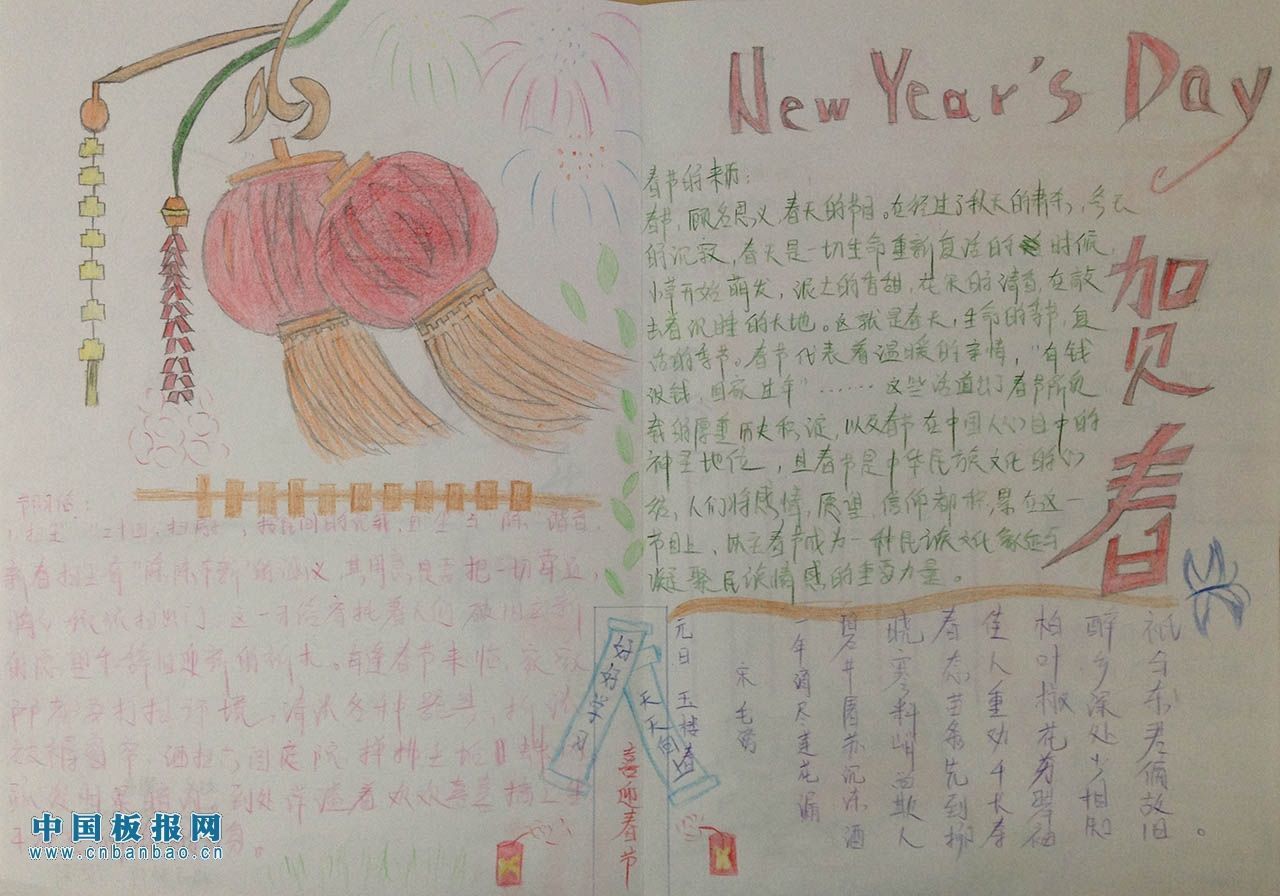 New Year's Day
贺春
春节的来历:
春节,顾名思义,春天的节日。在经过了秋天的肃杀,冬天
的沉寂,春天是一切生命重新复活的时候,
小草开始萌发,泥土的香甜,花果的清香,在散
去着沉睡的大地。这就是春天,生命的季节,复
活的季节。春节代表着温暖的亲情,“有钱
没钱,回家过年”……这些话道出了春节所负
载的厚重历史积淀,以及春节在中国人们目中的
神圣地位,且春节是中华民族文化的
结,人们将感情,愿望,信仰都积累在这一
节日上,春节成为一种民族文化象征与
凝聚民族情感的重要力量。
节前
扫尘 “二十四,扫房”,按民间的,因“尘”与“陈”谐音,
新春扫尘有“除陈布新”的涵义,其用意是要把一切
统统扫出门 这一习俗寄托着人们破旧立新
的愿望和辞旧迎新的祈求。每逢春节来临,家家
打扫环境,清洗各种器具,拆洗
被褥窗帘,洒扫六闾庭院,掸拂尘垢
到处洋溢着欢欢喜喜搞卫生
好好学习
天天
喜迎春节
元日 玉楼春
宋 毛滂
一年滴尽莲花漏
碧井屠苏沉冻酒
晓寒料峭尚欺人
春态苗条先到柳
佳人重劝千长寿
柏叶椒花芬翠袖
醉乡深处少相知
祇与东君偏故旧。
中国板报网
www.cnbanbao.cn